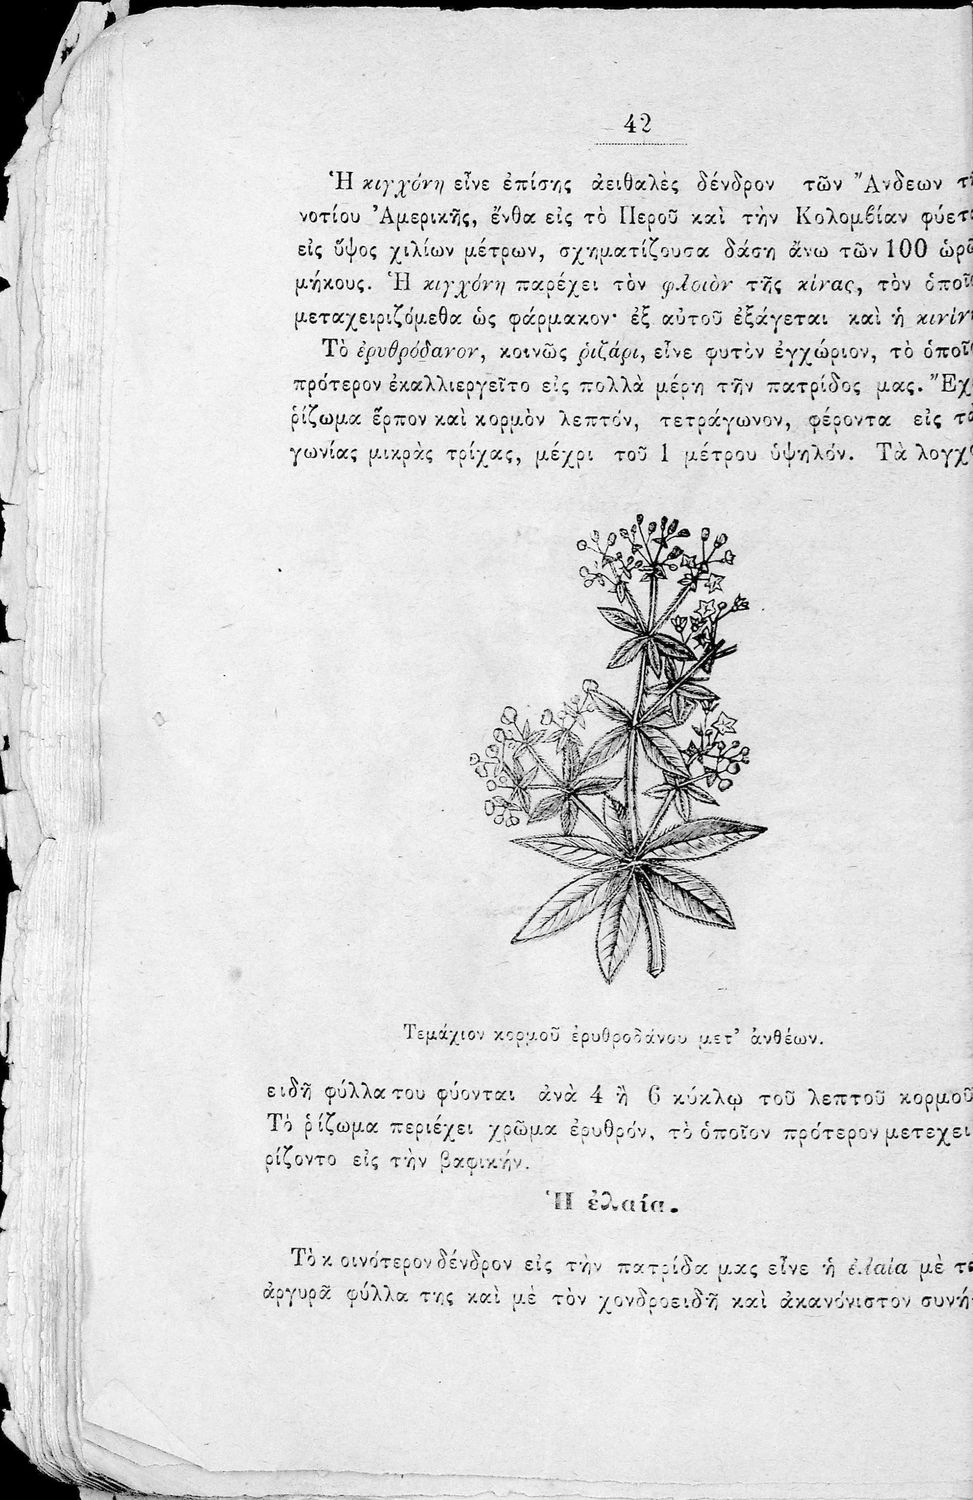 42
Ἡ κιγχόνη εἶνε ἐπίσης ἀειθαλὲς δένδρον τῶν Ἄνδεων
νοτίου Ἀμερικῆς, ἔνθα εἰς τὸ Περοῦ καὶ τὴν Κολομβίαν φύετ
εἰς ὕψος χιλίων μέτρων, σχηματίζουσα δάση ἄνω τῶν 100 ὡρῶ
μήκους. Ἡ κιγχόνη παρέχει τὸν φλοιὸν τῆς κίνας, τὸν ὁποῖ
μεταχειριζόμεθα ὡς φάρμακον· ἐξ αὐτοῦ ἐξάγεται καὶ ἡ κινίν
Τὸ ἐρυθρόδανον, κοινῶς ῥιζάρι, εἶνε φυτὸν ἐγχώριον, τὸ ὁποῖ
πρότερον ἐκαλλιεργεῖτο εἰς πολλὰ μέρη τῆν πατρίδος μας. Ἔχ
ῥίζωμα ἕρπον καὶ κορμὸν λεπτόν, τετράγωνον, φέροντα εἰς τὰ
γωνίας μικρὰς τρίχας, μέχρι τοῦ 1 μέτρου ὑψηλόν. Τὰ λογχο
Τεμάχιον κορμοῦ ἐρυθροδάνου μετ' ἀνθέων.
ειδῆ φύλλα του φύονται ἀνὰ 4 ἢ 6 κύκλῳ τοῦ λεπτοῦ κορμοῦ
Τὸ ῥίζωμα περιέχει χρῶμα ἐρυθρόν, τὸ ὁποῖον πρότερον μετεχει
ρίζοντο εἰς τὴν βαφικήν.
Ἡ ἐλαία.
Τὸ κ οινότερον δένδρον εἰς τὴν πατρίδα μας εἶνε ἡ ἐλαία μὲ τ
ἀργυρᾶ φύλλα της καὶ μὲ τὸν χονδροειδῆ καὶ ἀκανόνιστον συνή